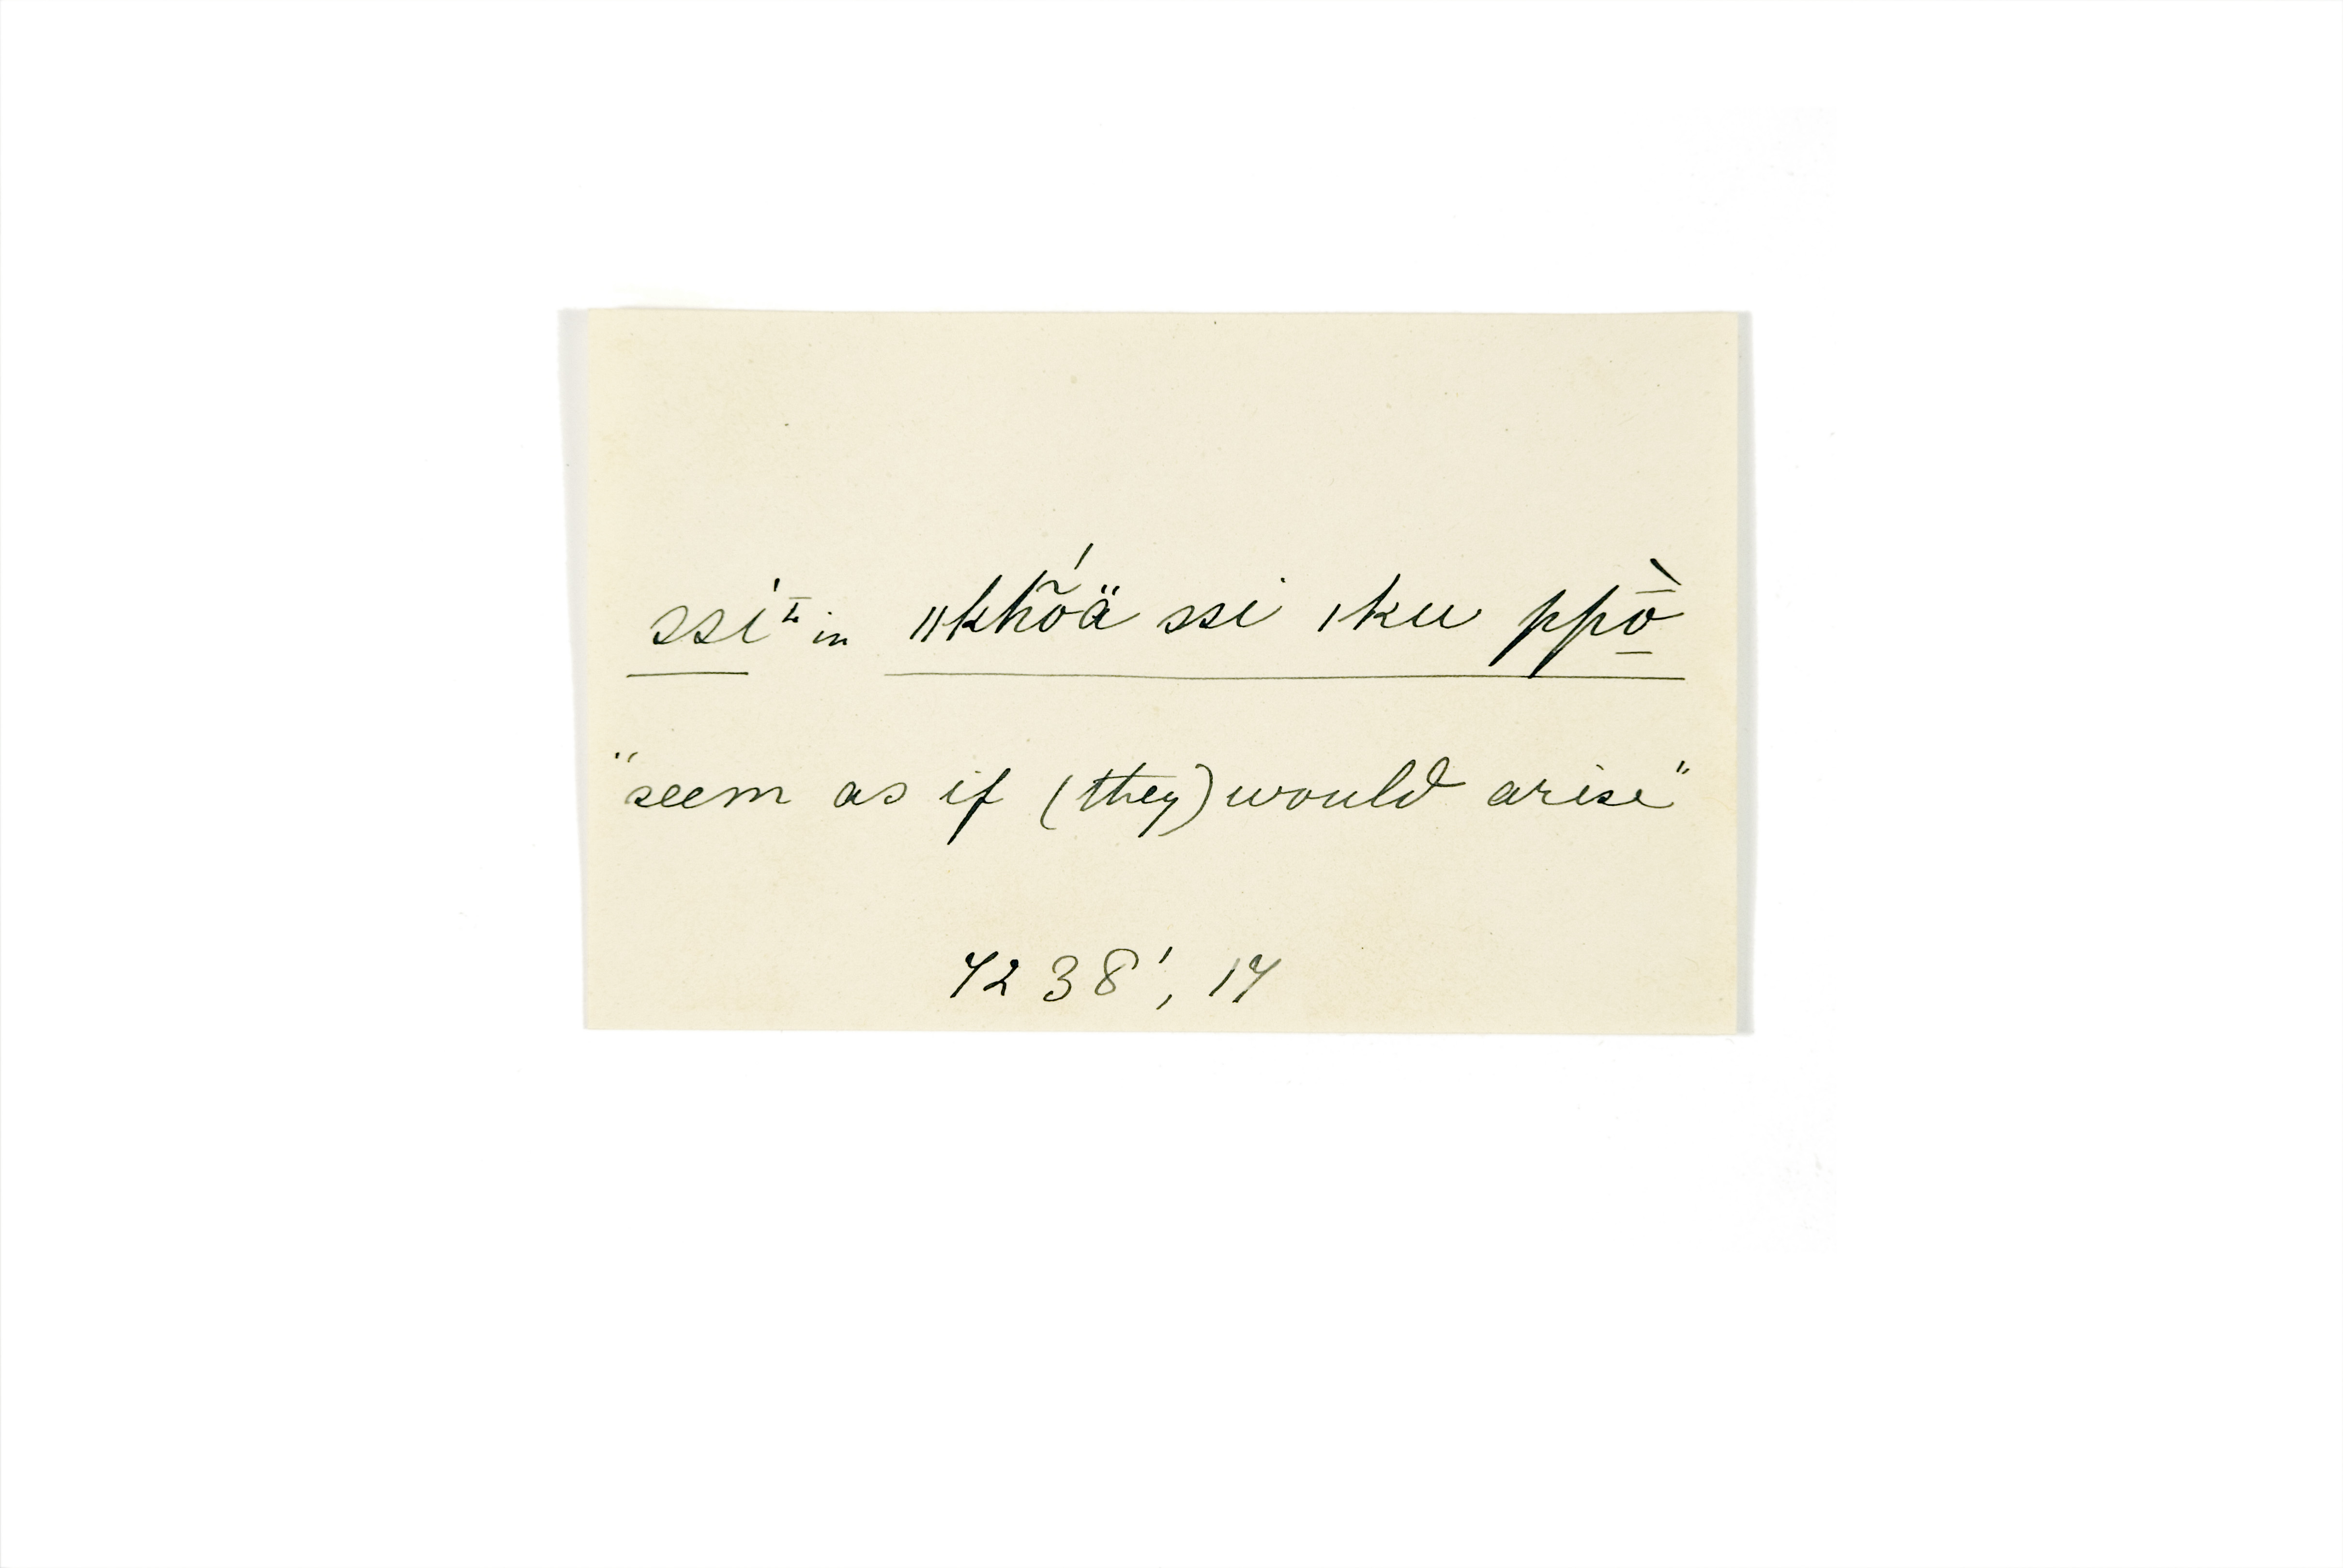 ssi´ᴵ in ǁkhõ´ä ssi ǀku ppṑ̱
"seem as if (they) would arise"
7238', 17